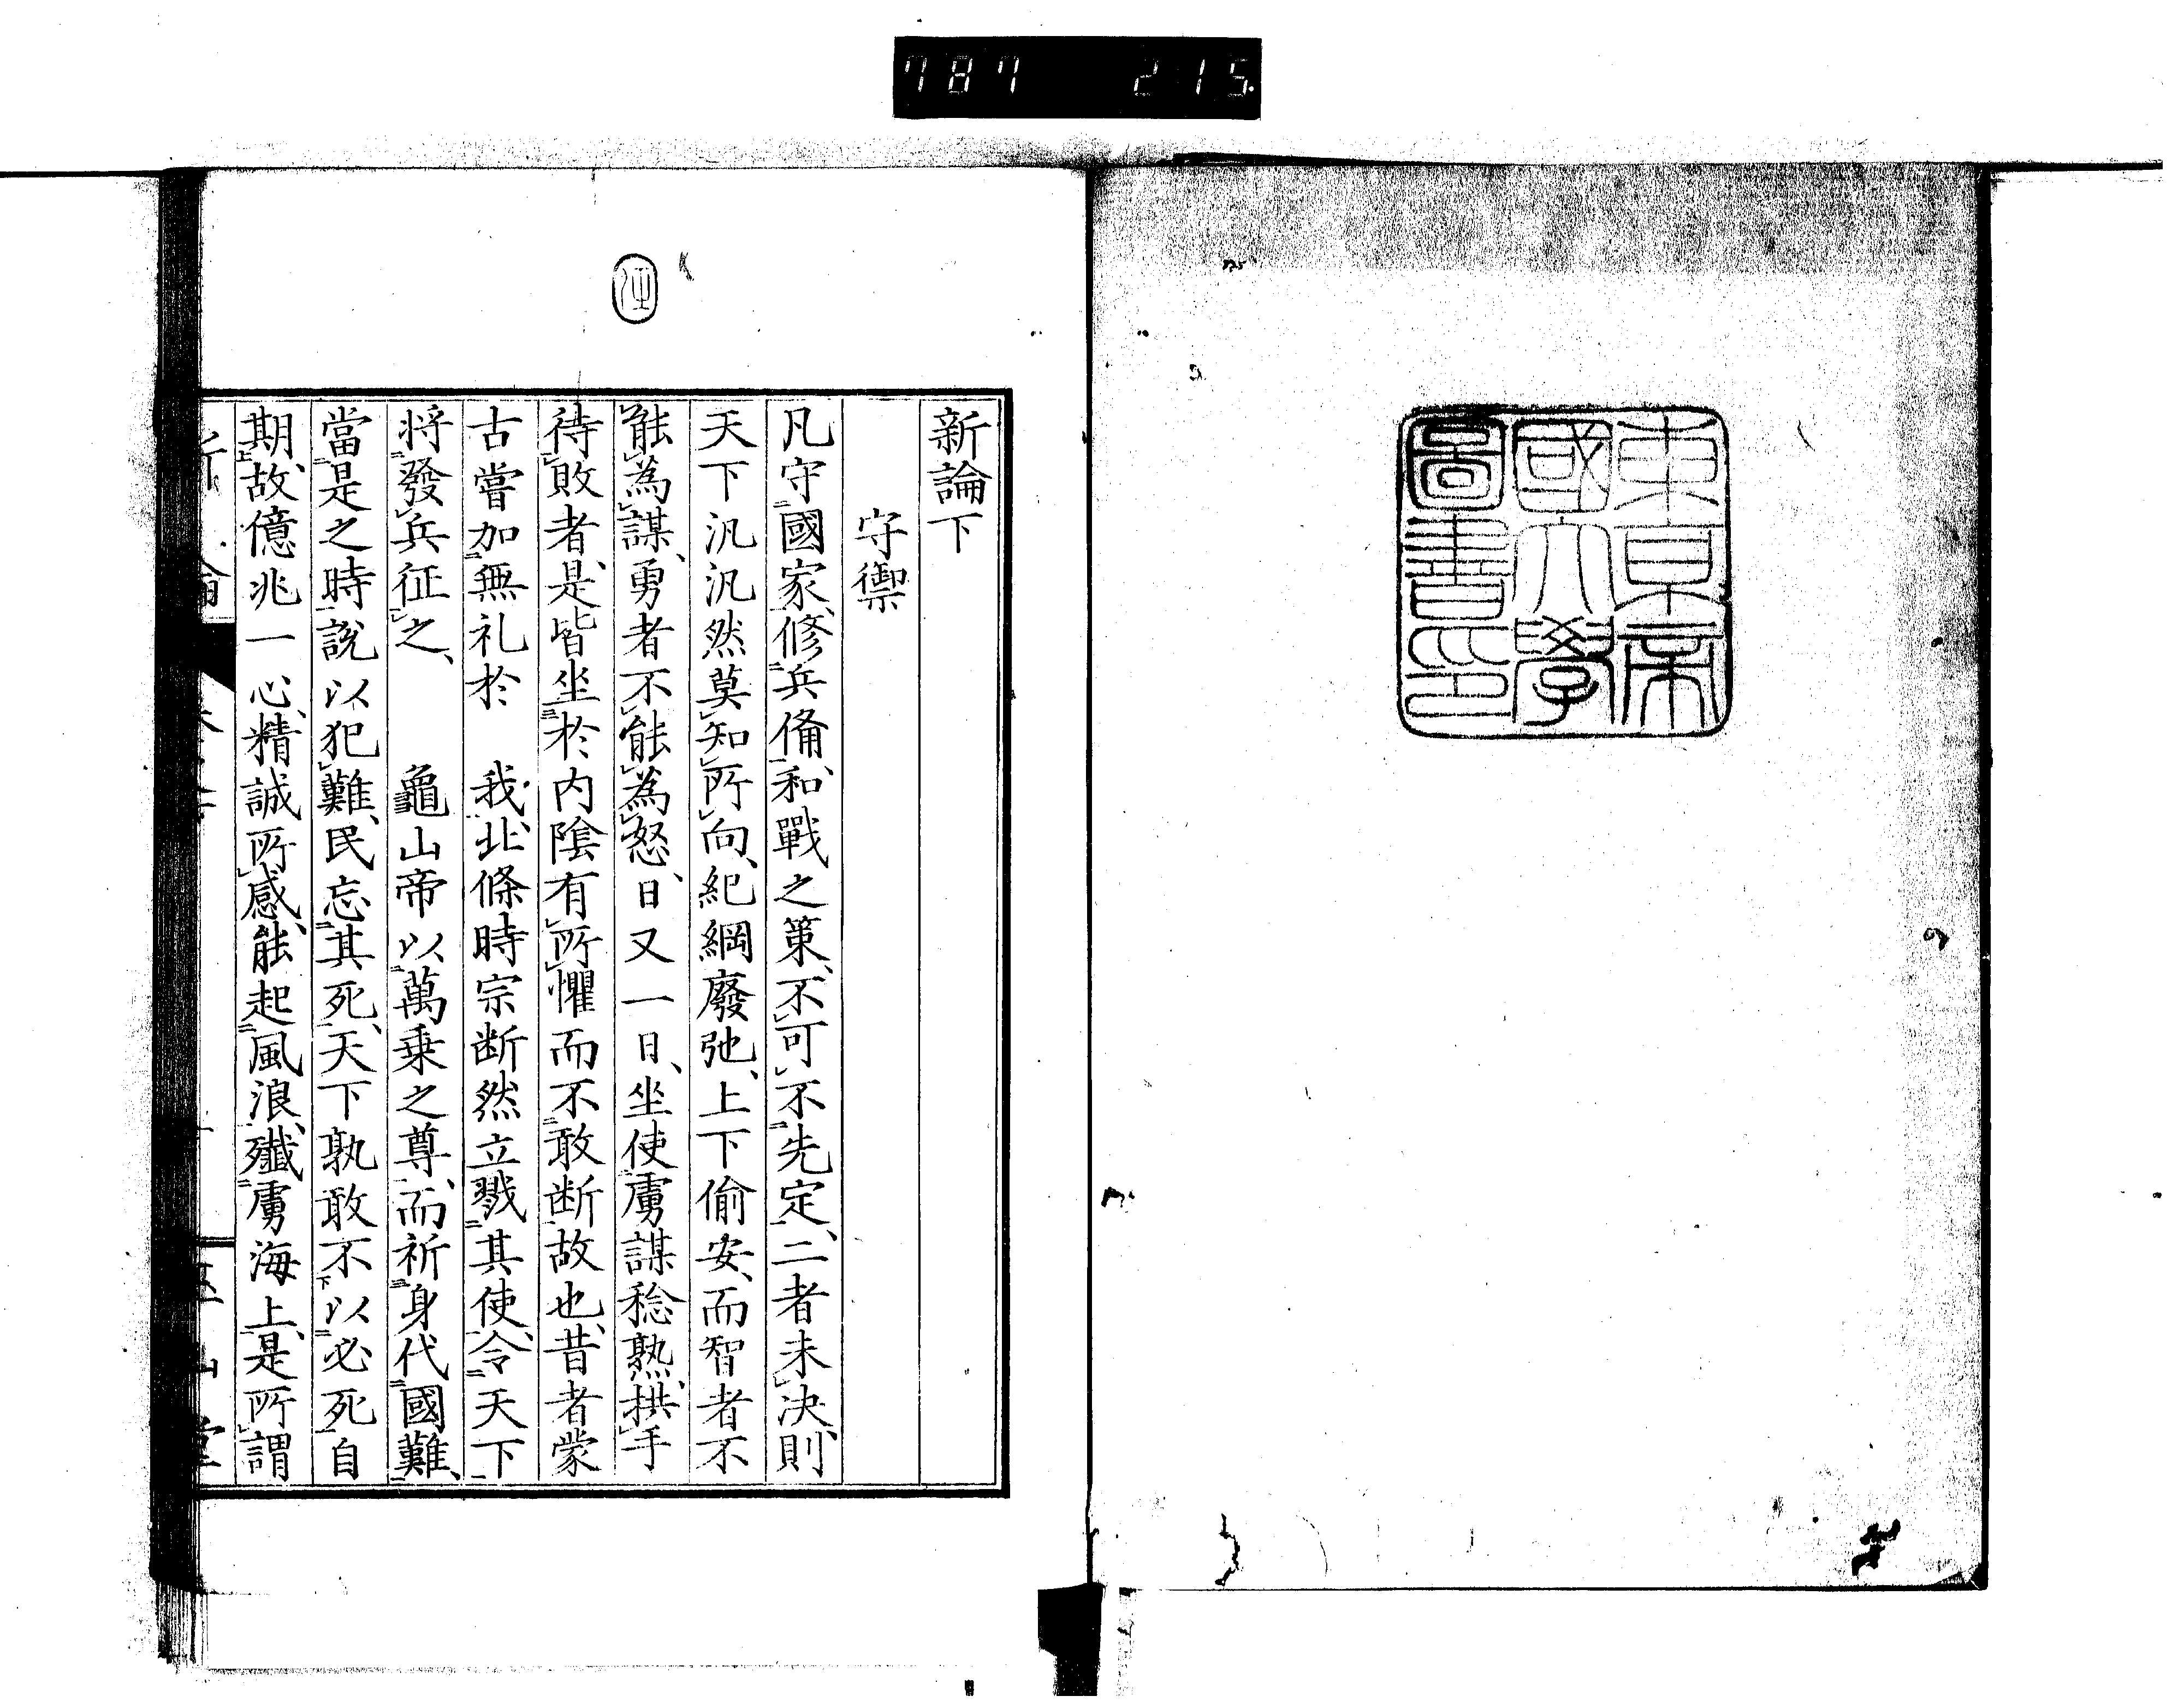 787 215
東京帝
國大學
圖書印
新論下
守禦
凡守國家、修兵備、和戰之策、不可不先定、二者未決、則
天下汎汎然莫知所向、紀綱廢弛、上下偷安、而智者不
能為謀、勇者不能為怒、日又一日、坐使虜謀稔熟、拱手
待敗者、是皆坐於内陰有所懼而不敢断故也、昔者蒙
古嘗加無礼於　我、北條時宗断然立戮其使、令天下
将發兵征之、　龜山帝以萬乗之尊、而祈身代國難、
當是之時、說以犯難、民忘其死、天下孰敢不以必死自
期、故億兆一心、精誠所感、能起風浪、殲虜海上、是所謂